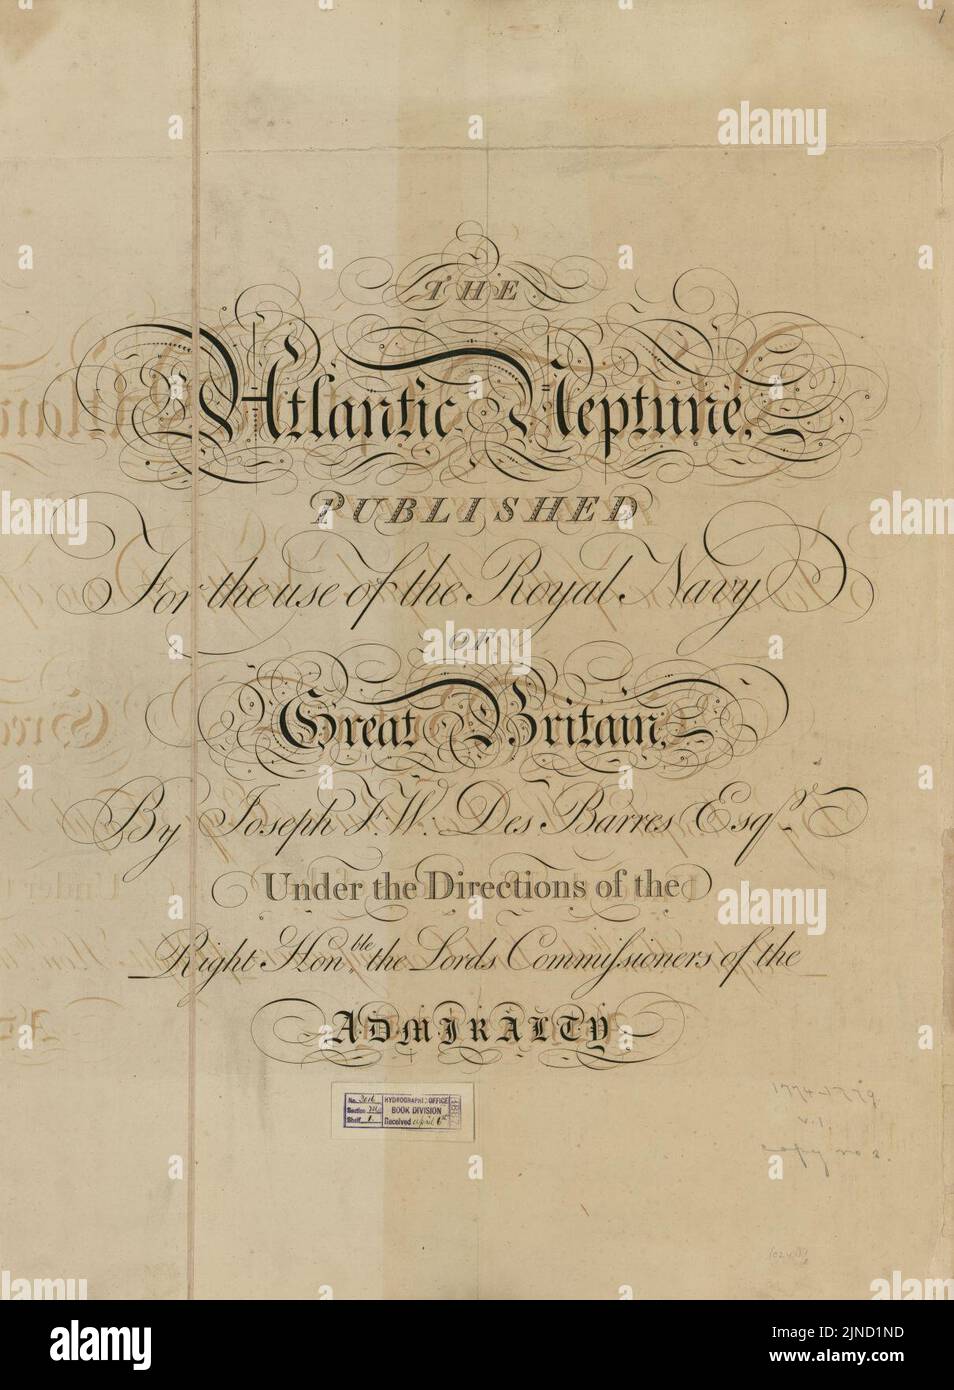 1
THE
Atlantic Neptune,
PUBLISHED
For the use of the Royal Navy
OF
Great Britain,
By Joseph F. W. Des Barres Esqr.
Under the Directions of the
Right Honble. the Lords Commissioners of the
ADMIRALTY
No. HYDROGRAPHIC OFFICE
Section BOOK DIVISION
Shelf 1 Received April 6th
1774-1779
v.1.
copy no 2.
alamy
a
alamy
Image ID: 2JND1ND
www.alamy.com